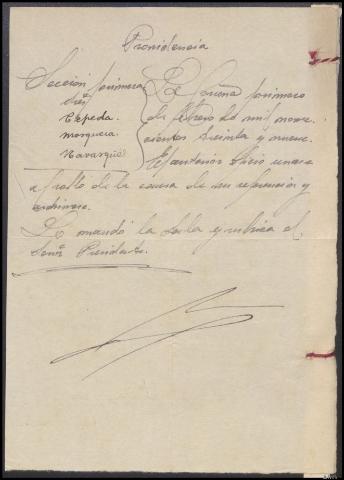 Providencia
Sección primera
Sres
Cepeda
Mosquera
Navarrete
La Coruña primero
de Febrero de mil nove-
cientos treinta y nueve.
El anterior oficio unase
a rollo de la causa de su referencia y
archivese.
Lo mandó la Sala y rubrica el
Señor Presidente.